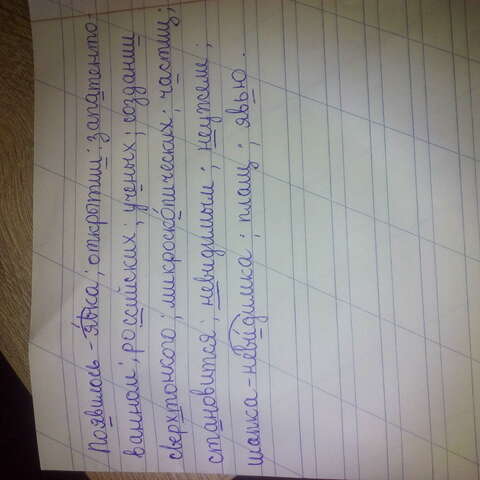 Появилась - явка; открытии; запатенто-
ванном; российских; ученых; создании
сверхтонкого; микроскопических; частиц;
становится; невидимым; неужели;
шапка-невидимка; плащ; явью.